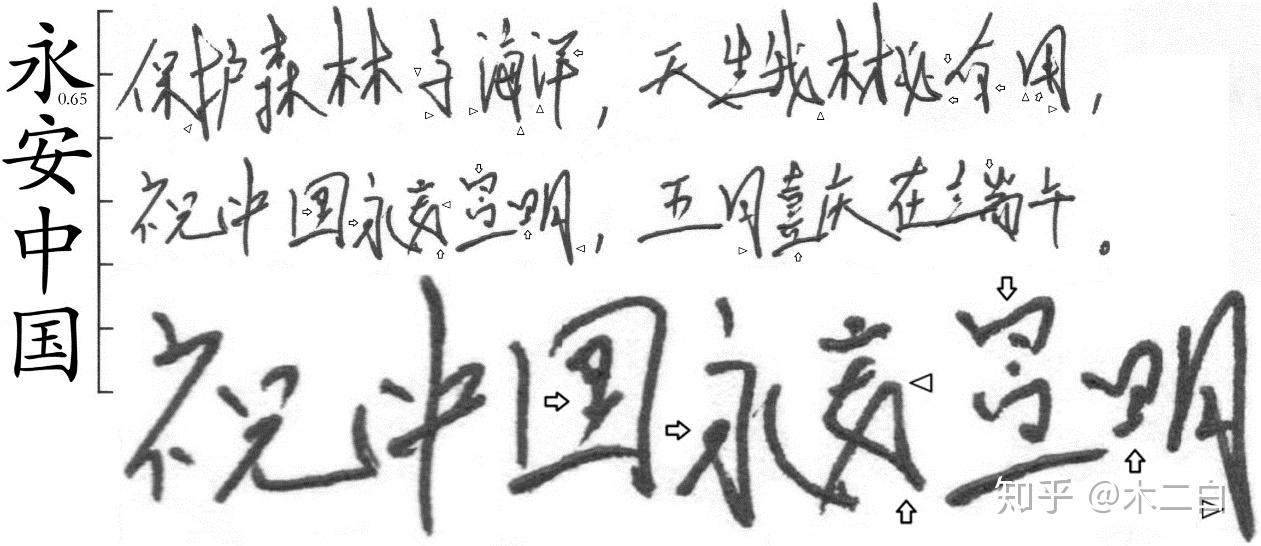 永安中国
0.65
保护森林与海洋，天生我材必有用，
祝中国永安昌明，五月喜庆在端午。
祝中国永安昌明
知乎 @木二白